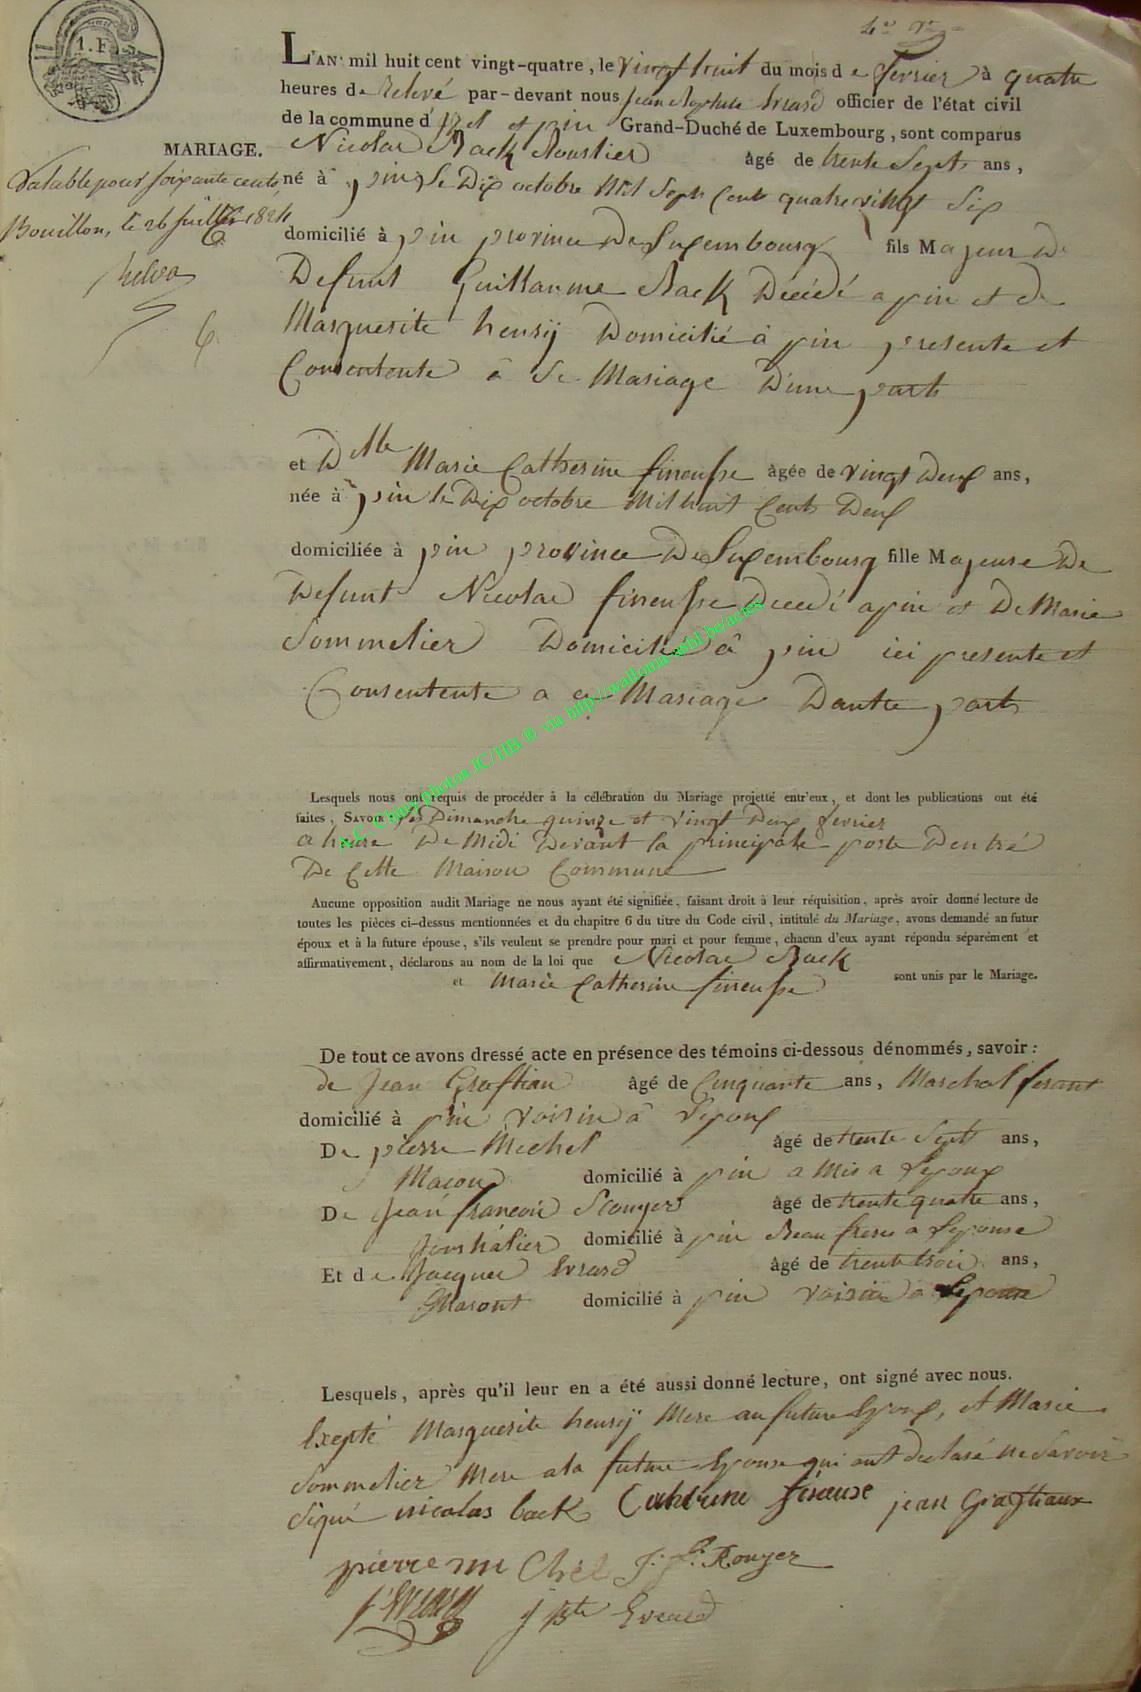 4e Vo
1. F
L'AN mil huit cent vingt-quatre, le vingt huit du mois de fevrier à quatre
heures de Relevé par-devant nous Jean Baptiste Evrard officier de l'état civil
de la commune d'Izel et pin Grand-Duché de Luxembourg, sont comparus
MARIAGE.
Nicolas Back âgé de trente Sept ans,
Valable pour soixante cents
né à pin le Dix octobre Mil Sept Cent quatre vingt Six
Bouillon, le 26 Juillet 1824
domicilié à pin province De Luxembourg fils Majeur de
Defunt Guillaume Back Décédé a pin et de
Marguerite henrÿ Domicilié à pin presente et
Consentente à Se Mariage D'une part
et Dlle Marie Catherine fineusse âgée de vingt Deux ans,
née à pin le Dix octobre Mil huit Cent Deux
domiciliée à pin province De Luxembourg fille Majeure De
Defunt Nicolas fineusse Decedé a pin et De Marie
Sommelier Domicilié à pin ici presente et
Consentente a ce Mariage Dautre part
Lesquels nous ont requis de procéder à la célébration du Mariage projetté entr'eux, et dont les publications ont été
faites, SAVOIR les Dimanche quinze et vingt Deux fevrier
a heure De Midi Devant la principale porte Dentré
De Cette Maison Commune
Aucune opposition audit Mariage ne nous ayant été signifiée, faisant droit à leur réquisition, après avoir donné lecture de
toutes les pièces ci-dessus mentionnées et du chapitre 6 du titre du Code civil, intitulé du Mariage, avons demandé au futur
époux et à la future épouse, s'ils veulent se prendre pour mari et pour femme, chacun d'eux ayant répondu séparément et
affirmativement, déclarons au nom de la loi que Nicolas Back
et Marie Catherine fineusse sont unis par le Mariage.
De tout ce avons dressé acte en présence des témoins ci-dessous dénommés, savoir :
de Jean Graftiau âgé de Cinquante ans, Marchal ferant
domicilié à pin voisin à lepoux
De pierre Michel âgé de trente Sept ans,
Macon domicilié à pin a Mis a Lepoux
De Jean francois Rouyer âgé de trente quatre ans,
domicilié à pin Beau frere a Lepouse
Et de Jacques Evrard âgé de trente trois ans,
domicilié à pin voisin a Lepouse
Lesquels, après qu'il leur en a été aussi donné lecture, ont signé avec nous.
Exepté Marguerite henrÿ Mere au futur Epoux, et Marie
Sommelier Mere a la future Epouse qui ont declaré ne Savoir
Signé nicolas back Catherine fineuse jean Graftiaux
pierre mi Chel J. f. Rouyer
J Evrard J Bte Evrard
A.C. Chiny photos JC/HB ® via http://wallonia-asbl.be/actes